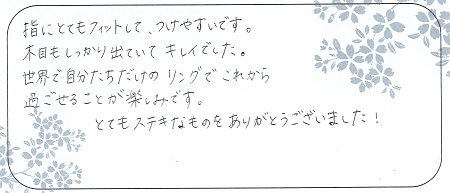 指にとてもフィットして、つけやすいです。
木目もしっかり出ていて キレイでした。
世界で自分たちだけの リングで これから
過ごせることが楽しみです。
とてもステキなものを ありがとうございました！